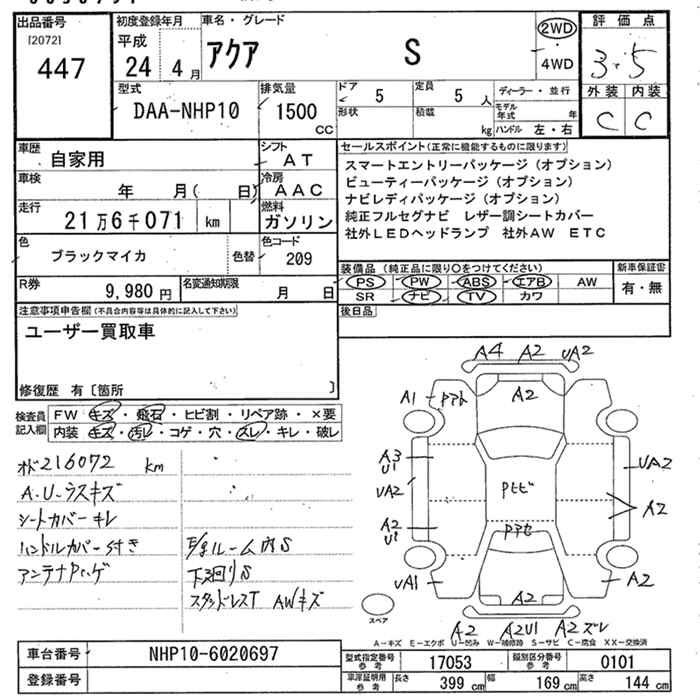 出品番号
[2072]
447
初度登録年月
平成
24 4月
車名・グレード
アクア S
2WD
4WD
評価点
3.5
外装 内装
C C
型式
DAA-NHP10
排気量
1500
CC
ドア
5
定員
5人
形状
積載
kg
ディーラー・並行
モデル年式 年
ハンドル 左・右
車歴
自家用
シフト
AT
車検
年 月( 日)
冷房
AAC
走行
21万6千071 km
燃料
ガソリン
色
ブラックマイカ
色替
色コード
209
R券
9,980円
名変通知期限
月 日
セールスポイント(正常に機能するものに限ります)
スマートエントリーパッケージ(オプション)
ビューティーパッケージ(オプション)
ナビレディパッケージ(オプション)
純正フルセグナビ レザー調シートカバー
社外LEDヘッドランプ 社外AW ETC
装備品(純正品に限り○をつけてください)
PS PW ABS エアB AW
SR ナビ TV カワ
新車保証書
有・無
後日品
注意事項申告欄(不具合内容等は具体的に記入して下さい)
ユーザー買取車
修復歴 有〔箇所 〕
検査員記入欄
FW キズ・飛石・ヒビ割・リペア跡・×要
内装 キズ・汚レ・コゲ・穴・スレ・キレ・破レ
オド216072 km
A.U-ラスキズ
シートカバーキレ
ハンドルカバー付き
アンテナPハゲ
ルーム内S
下廻りS
スタッドレスT AWキズ
A4 A2 UA2
A1
Pアト
A2
A3
U1
UA2
A2
U1
UA1
Pトビ
Pアセ
UA2
A2
A2
A2
A2 A2U1 A2ズレ
スペア
A-キズ E-エクボ U-凹み W-補修跡 S-サビ C-腐食 XX-交換済
車台番号
NHP10-6020697
登録番号
型式指定番号
参考
17053
類別区分番号
参考
0101
車庫証明用
参考
長さ
399 cm
幅
169 cm
高さ
144 cm